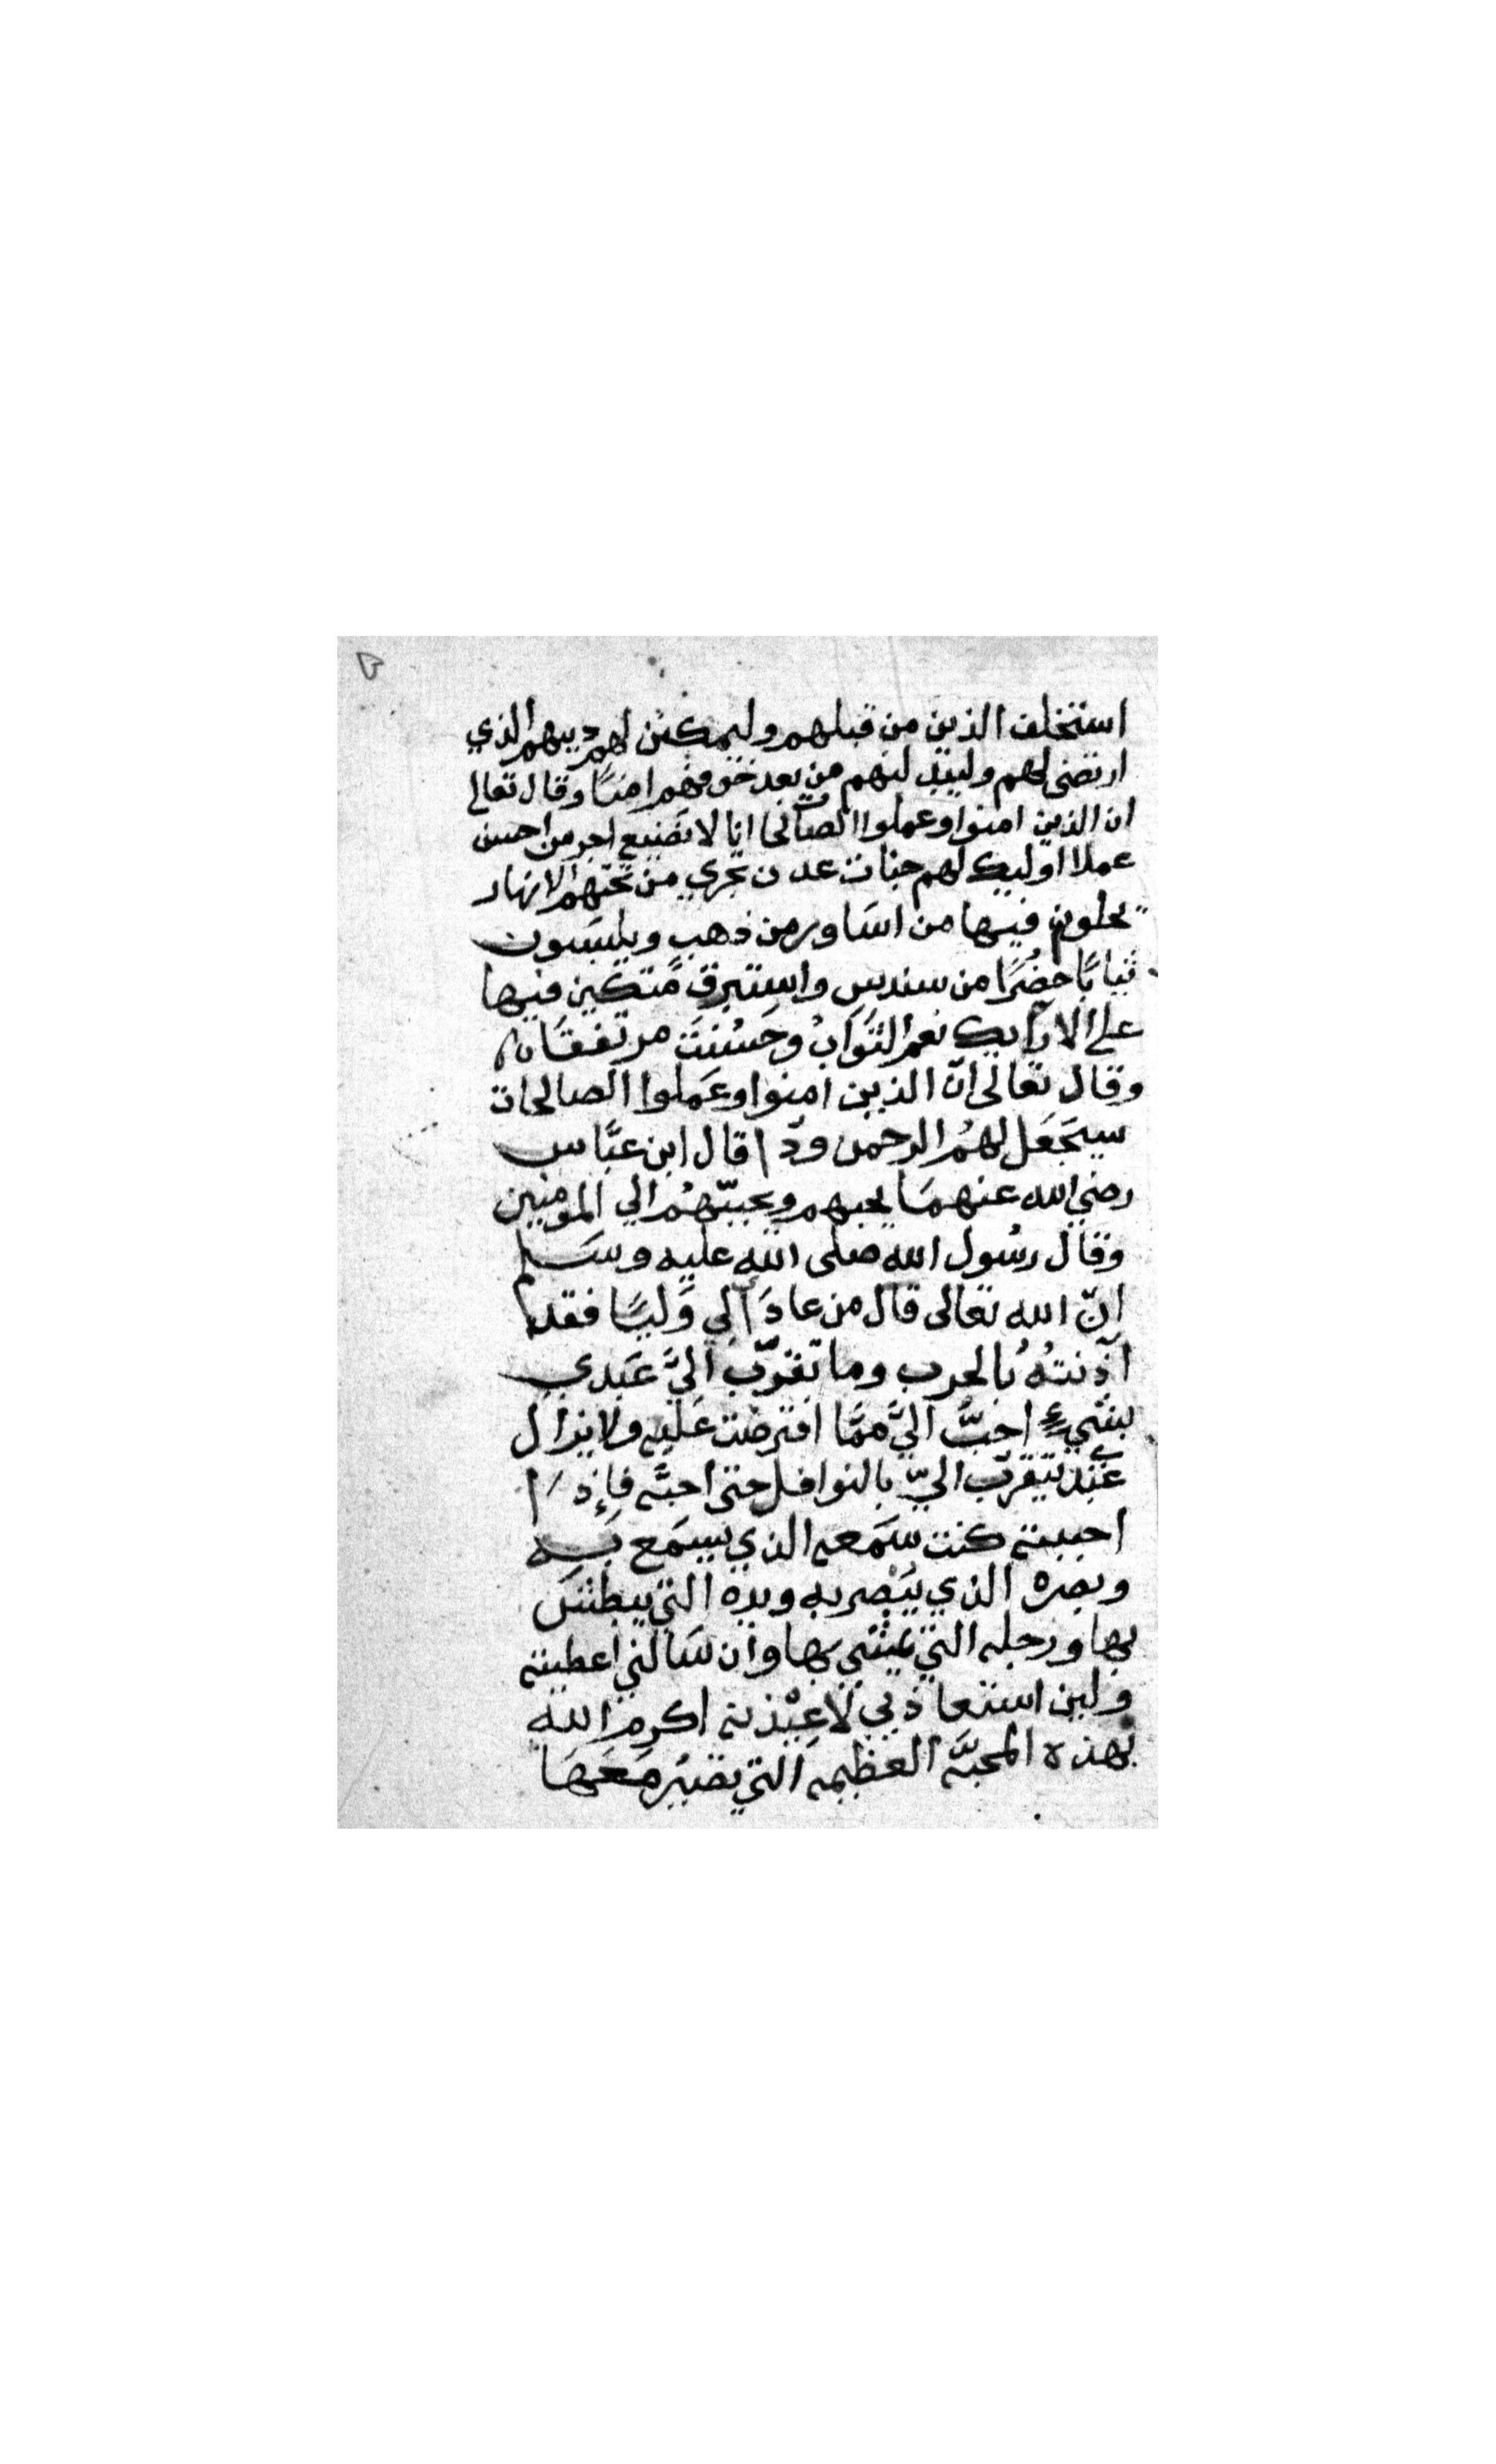 استخلف الذين من قبلهم وليمكنن لهم دينهم الذي
ارتضى لهم وليبدلنهم من بعد خوفهم امنًا وقال تعالى
ان الذين امنوا وعملوا الصالحات انا لا نضيع اجر من احسن
عملا اوليك لهم جنات عدن تجري من تحتهم الانهار
يحلون فيها من اسَاور من ذهب ويلبسَون
ثيابًا خضُرًا من سندس واستبرق مُتكين فيها
على الارآيك نعم الثوَابُ وحَسُنَتَ مرتفقَا
وقال تعالى انّ الذين امنوا وعَملوا الصالحات
سيجَعَل لهمُ الرحمن ودّا قال ابن عبَّاس
رضي الله عنهمَا يحبهم ويحببّهمُ الي المومنين
وقال رسُول الله صلى الله عليه وسَلم
انّ الله تعالى قال من عادَا لي وَليًا فقد
آذنتهُ بُالحرب وما تقرّب اليَّ عَبَدي
بشيءٍ احَبَّ اليَّ ممَّا افترضت عَليه ولا يزال
عَبْدي يتقرّب اليّ بالنوافل حتى احبَّه فإِذَا
احببته كنت سَمَعه الذي يسمَع بِه
وبصره الذي يُبْصر به ويده التي يبطش
بها ورجله التي يمْشي بهَا وان سَالني اعطيته
ولين استعاذني لاعِيْذنه اكرم الله
بهذه المحبَّه العظيمه التي يصَيُر مَعَهَا